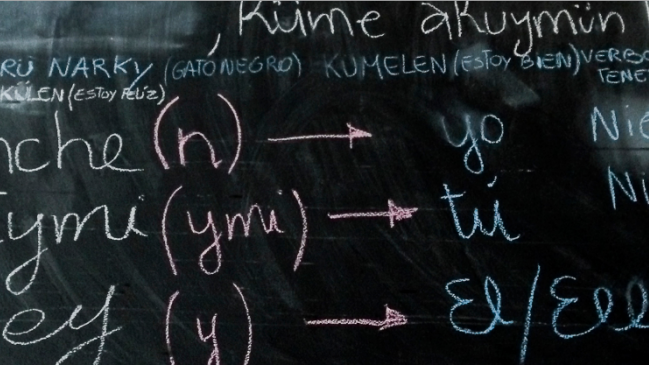 Küme akuymün
RÜ NARKY (GATO NEGRO) KUMELEN (ESTOY BIEN) VERBO
KÜLEN (ESTOY FELÍZ) TENE
nche (n) → yo Nie
ymi (ymi) → tú Ni
ey (y) → El/Ell